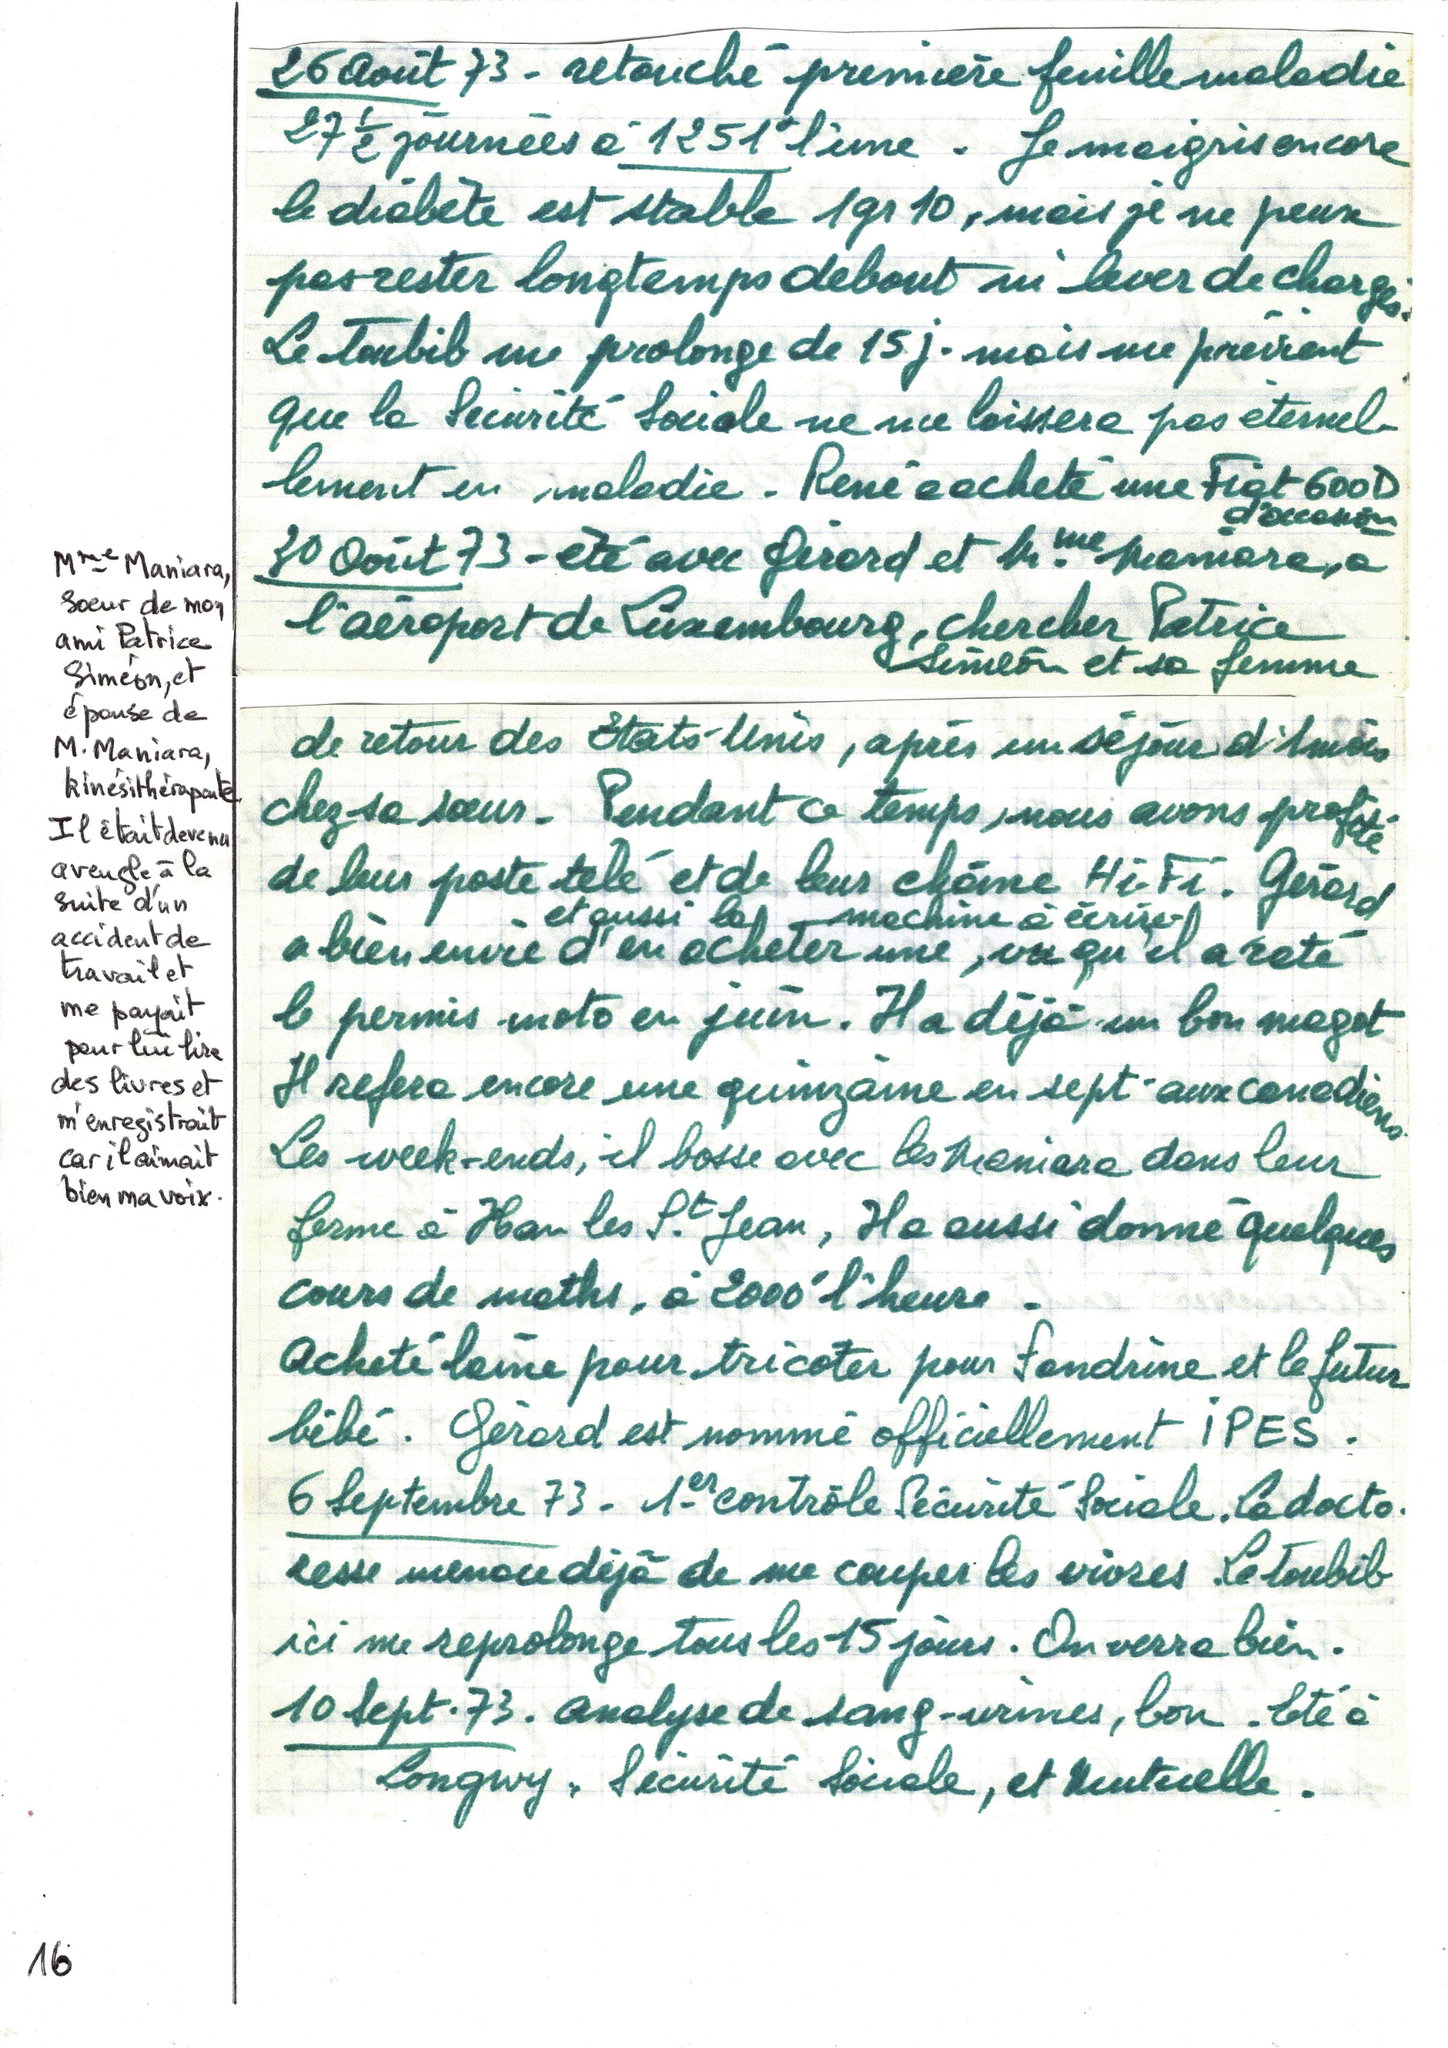 26 Août 73 - retouché première feuille maladie
27 1/2 journées à 1251f l'une. Je maigris encore
le diabète est stable 1gr10, mais je ne peux
pas rester longtemps debout ni lever de charges.
Le Toubib me prolonge de 15 j. mais me prévient
que la Sécurité Sociale ne me laissera pas éternel-
lement en maladie. René a acheté une Fiat 600D
d'occasion
30 Août 73 - été avec Gérard et Mme Maniara, à
l'aéroport de Luxembourg, chercher Patrice
Siméon et sa femme
de retour des Etats-Unis, après un séjour d'1 mois
chez sa sœur. Pendant ce temps, nous avons profité
de leur poste télé et de leur chaîne Hi-Fi. Gérard
et aussi la machine à écrire
a bien envie d'en acheter une, vu qu'il a raté
le permis moto en juin. Il a déjà un bon magot
Il refera encore une quinzaine en sept. aux canadiens.
Les week-ends, il bosse avec les Maniara dans leur
ferme à Han les St Jean, Il a aussi donné quelques
cours de maths, à 2000f l'heure.
Acheté laine pour tricoter pour Sandrine et le futur
bébé. Gérard est nommé officiellement IPES.
6 Septembre 73 - 1er contrôle Sécurité Sociale. La docto-
resse menace déjà de me couper les vivres. Le toubib
ici me reprolonge tous les 15 jours. On verra bien.
10 Sept. 73. analyse de sang-urines, bon. Eté à
Longwy. Sécurité Sociale, et Mutuelle.
Mme Maniara,
soeur de mon
ami Patrice
Siméon, et
épouse de
M. Maniara,
kinésithérapeute.
Il était devenu
aveugle à la
suite d'un
accident de
travail et
me payait
pour lui lire
des livres et
m'enregistrait
car il aimait
bien ma voix.
16